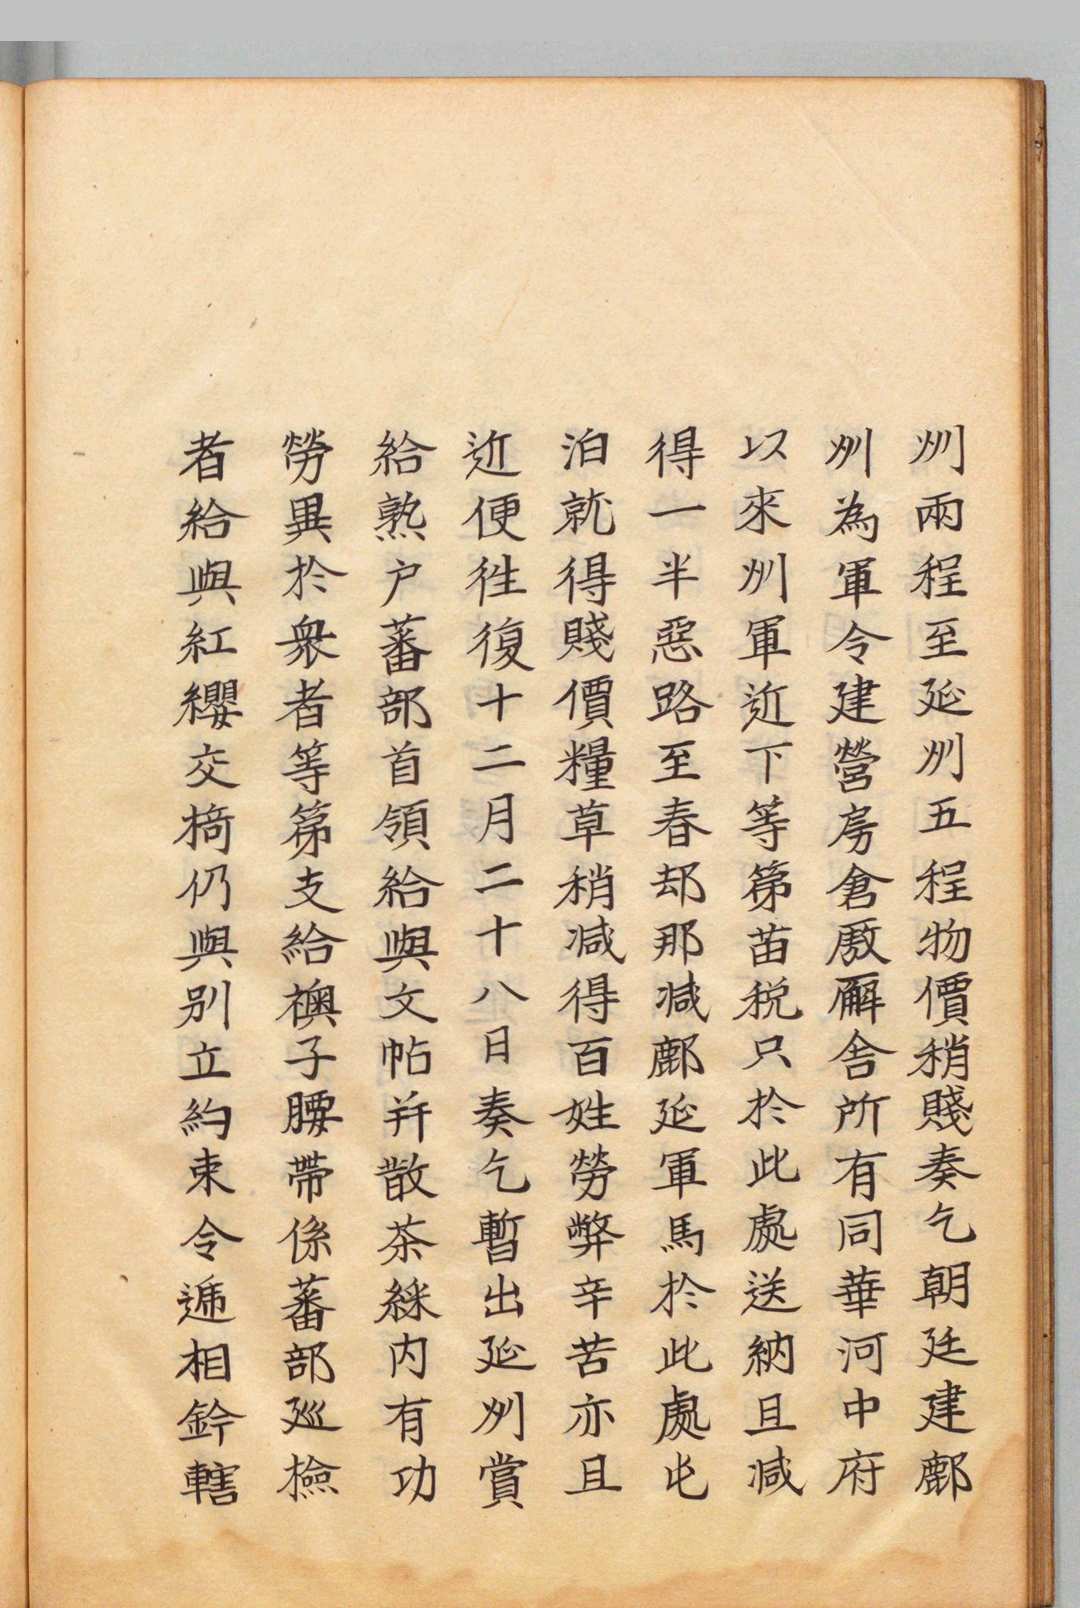 州兩程至延州五程物價稍賤奏乞朝廷建鄜
州為軍令建營房倉厫廨舍所有同華河中府
以來州軍近下等第苗稅只於此處送納且減
得一半惡路至春却那減鄜延軍馬於此處屯
泊就得賤價糧草稍减得百姓勞弊辛苦亦且
近便徃復十二月二十八日奏乞暫出延州賞
給熟户蕃部首領給與文帖并散茶綵内有功
勞異於衆者等第支給襖子腰帶係蕃部巡檢
者給與紅纓交椅仍與别立約束令遞相鈐轄